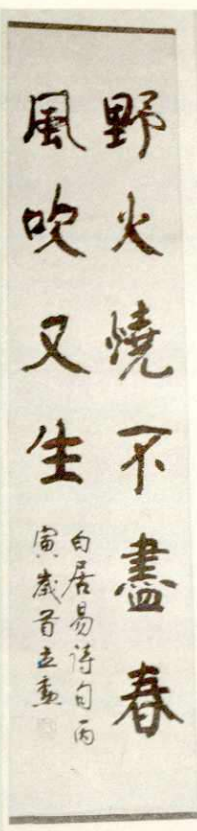 野火燒不盡春
風吹又生
白居易詩句丙
寅歲首立勳